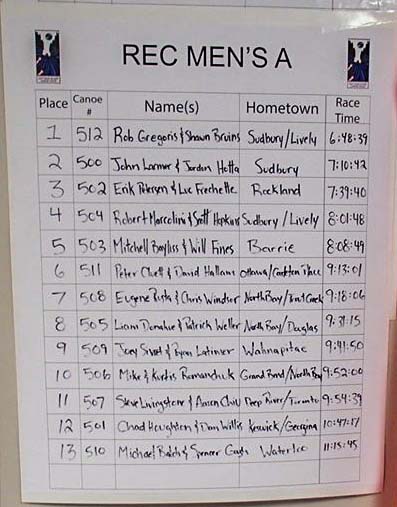 REC MEN'S A
Place Canoe # Name(s) Hometown Race Time
1 512 Rob Gregoris & Shawn Bruins Sudbury/Lively 6:48:39
2 500 John Larmer & Jordan Hotta Sudbury 7:10:42
3 502 Erik Petersen & Luc Frechette Rockland 7:39:40
4 504 Robert Marcolini & Scott Hopkins Sudbury/Lively 8:01:48
5 503 Mitchell Bayliss & Will Fines Barrie 8:08:49
6 511 Peter & David Hallam Ottawa/Carleton Place 9:13:01
7 508 Eugene & Chris Windsor North Bay/Trout Creek 9:18:06
8 505 Liam Donahue & Patrick Weller North Bay/Douglas 9:31:15
9 509 Joey & Ryan Latimer Wahnapitae 9:41:50
10 506 Mike & Kurtis Romanchuk Grand Bend/North Bay 9:52:00
11 507 Steve Livingstone & Aaron Chiu Deep River/Toronto 9:54:39
12 501 Chad Houghton & Dan Willis Keswick/Georgina 10:47:17
13 510 Michael Balch & Spencer Waterloo 11:15:45